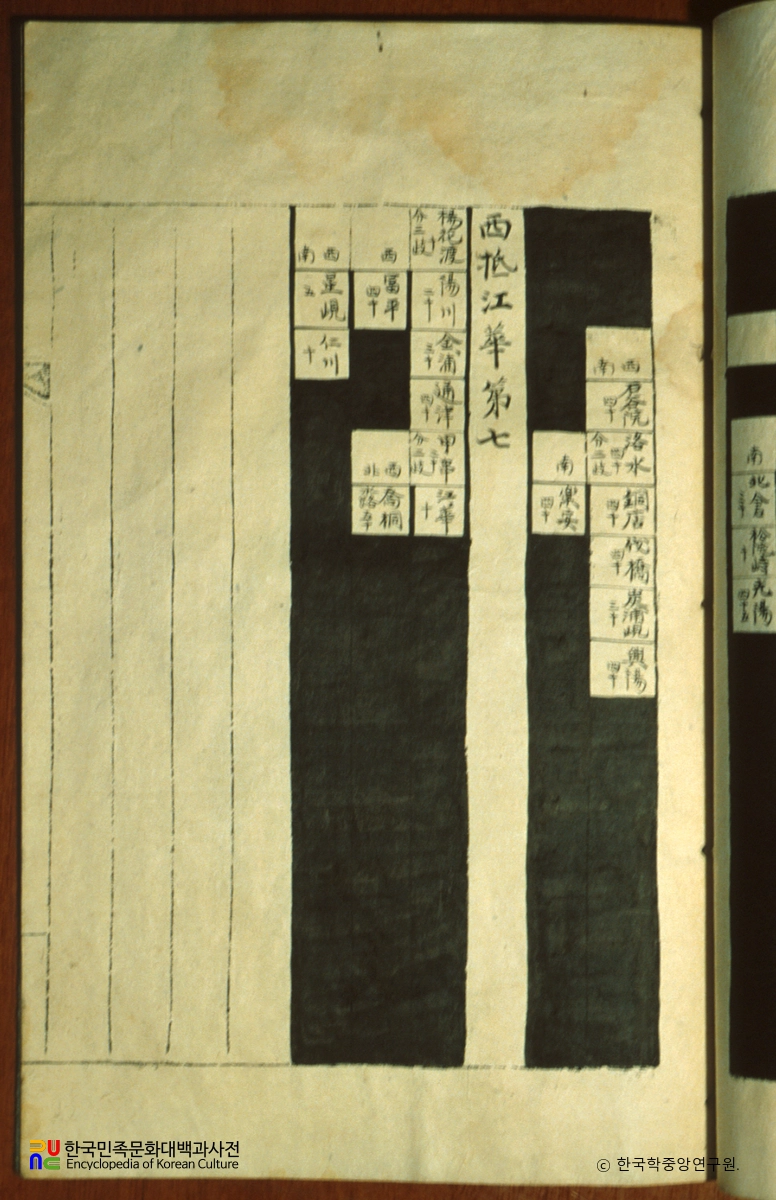 南
北倉
十
光陽
四十五
西
南
石谷院
四十
洛水
四十
分二歧
銅店
四十
伐橋
四十
炭浦峴
三十
興陽
四十
南
樂安
四十
西抵江華第七
楊花渡
十
分三歧
陽川
二十
金浦
三十
通津
四十
甲串
三十
分二歧
江華
十
西
富平
四十
西
北
喬桐
水路五十
西
南
星峴
五
仁川
十
한국민족문화대백과사전
Encyclopedia of Korean Culture
ⓒ 한국학중앙연구원.